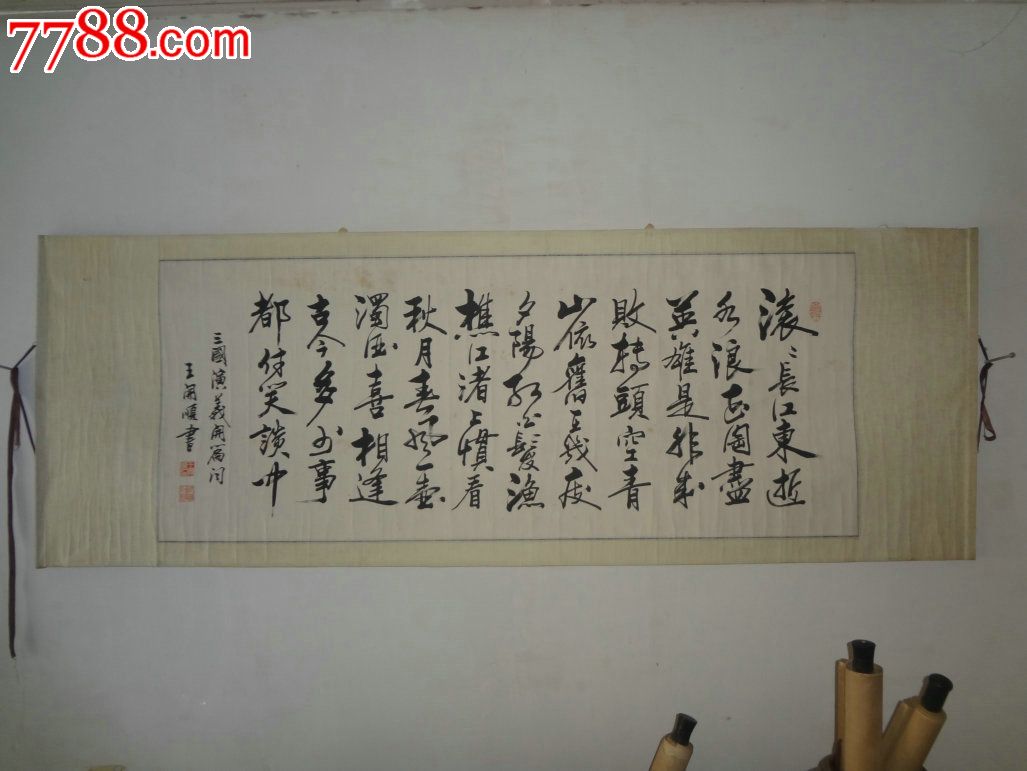 7788.com
滚〻長江東逝
水浪花淘盡
英雄是非成
敗轉頭空青
山依舊在幾度
夕陽紅白髮漁
樵江渚上慣看
秋月春風一壺
濁酒喜相逢
古今多少事
都付笑談中
三國演義開篇词
王順書